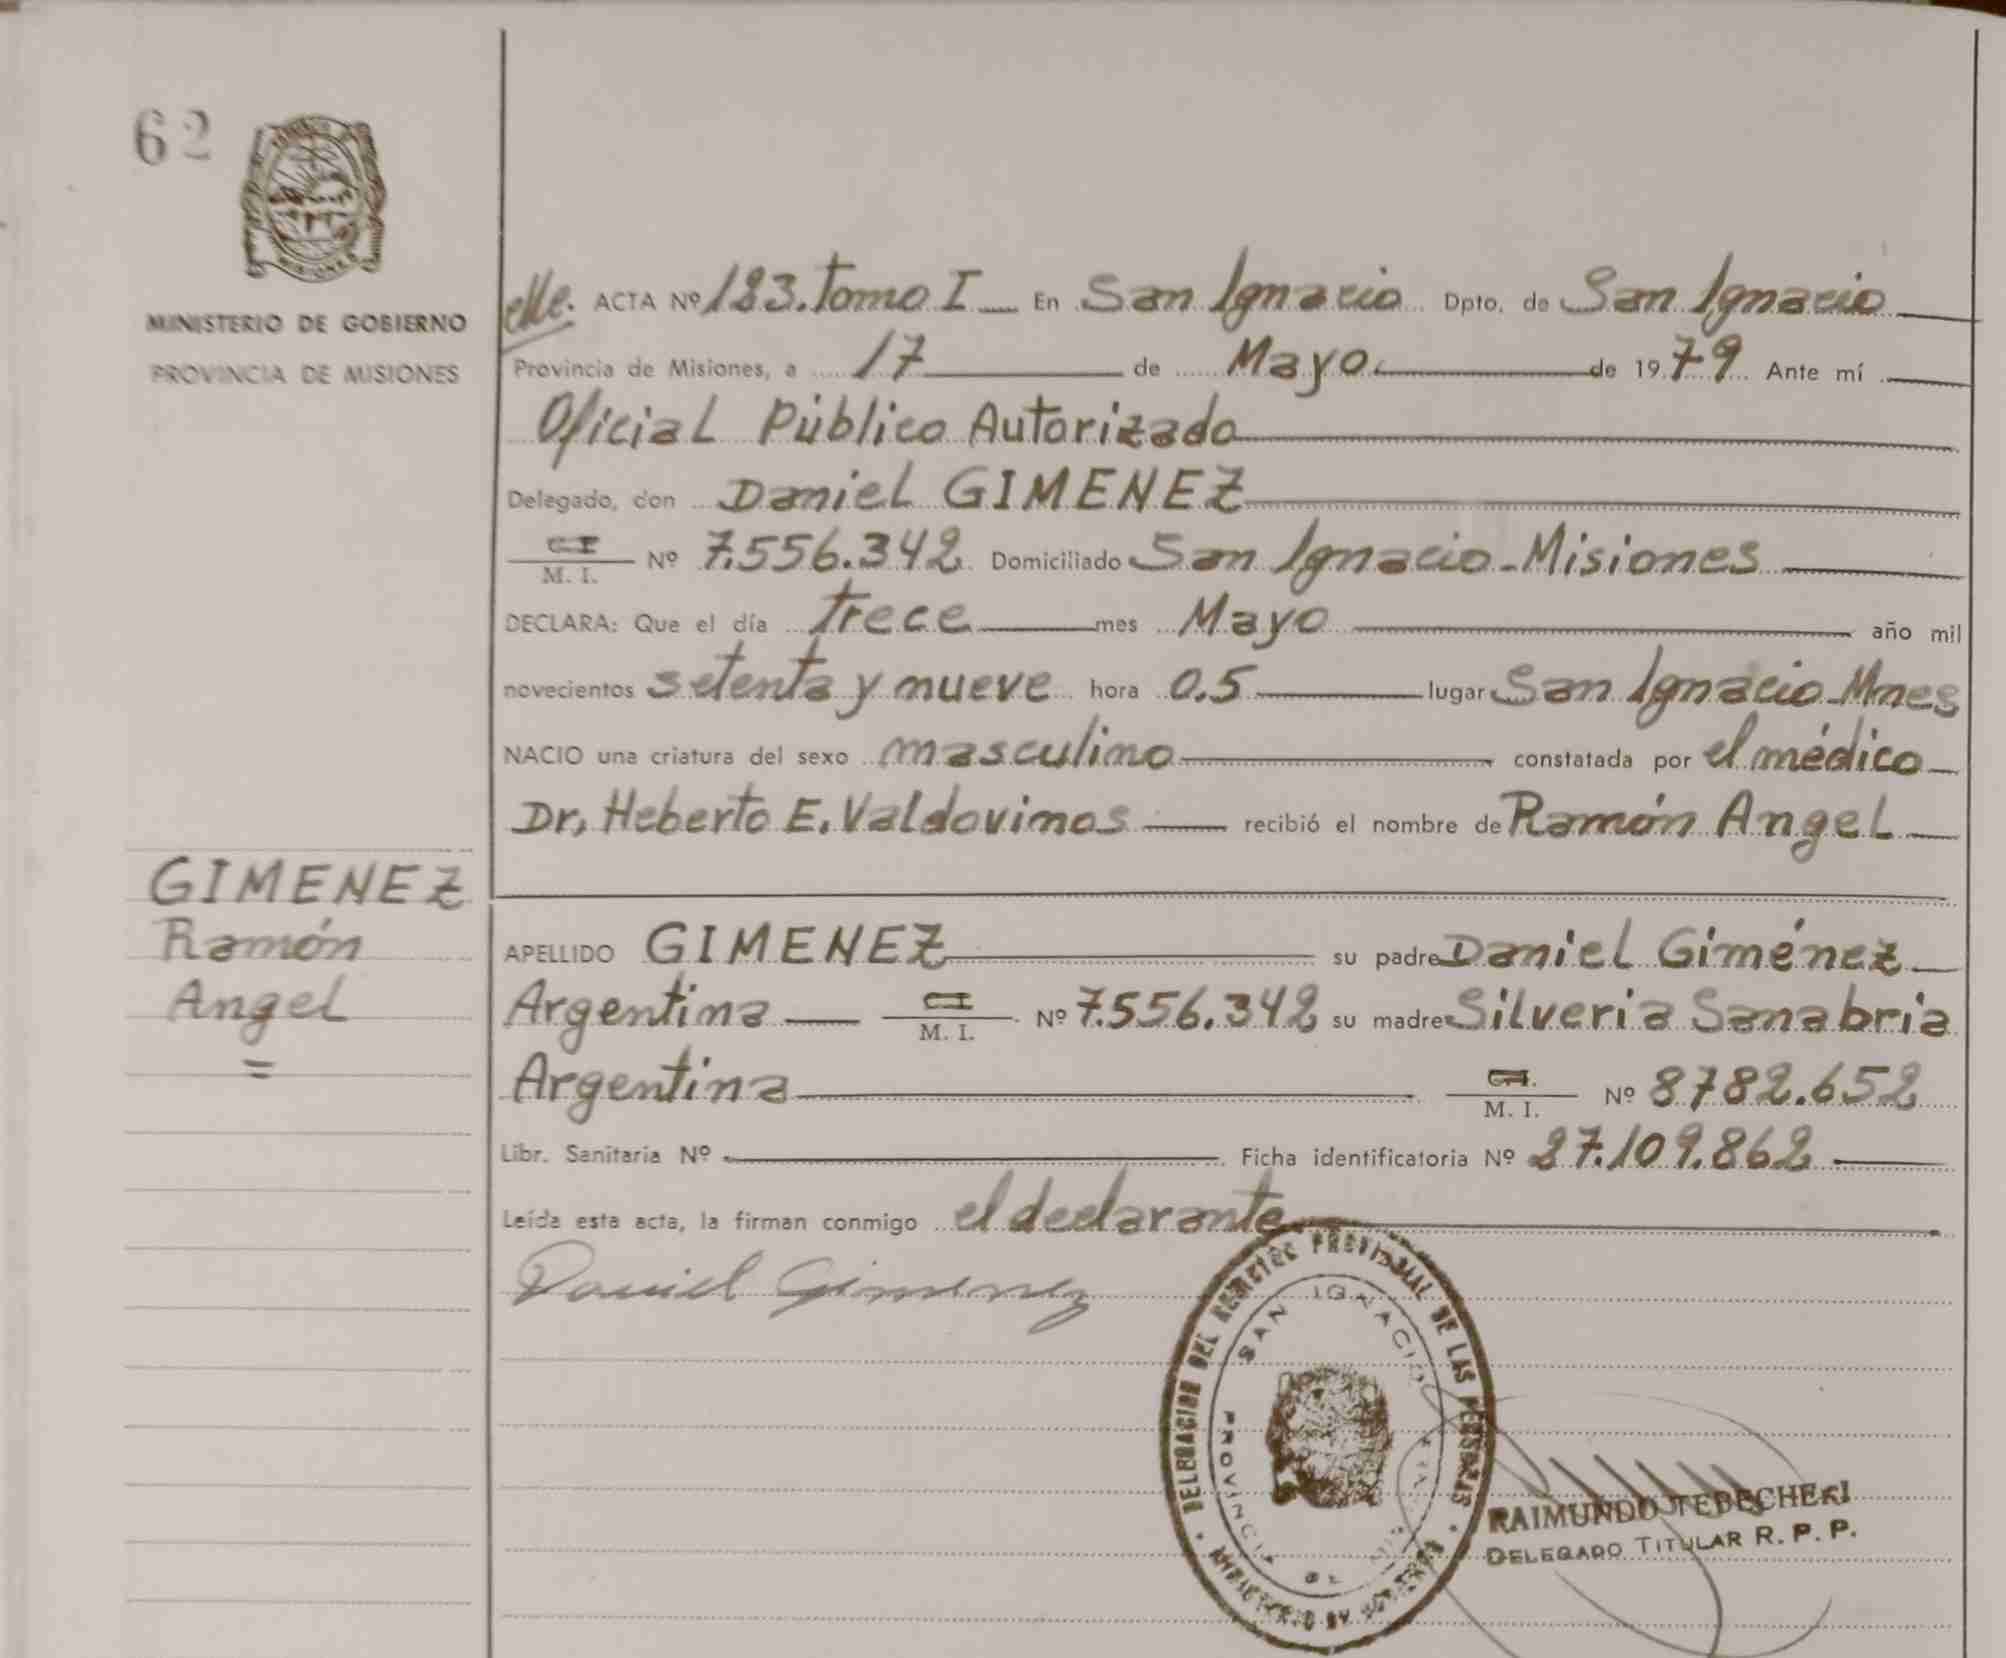 62
MINISTERIO DE GOBIERNO
PROVINCIA DE MISIONES
ACTA Nº 183. Tomo I En San Ignacio Dpto. de San Ignacio
Provincia de Misiones, a 17 de Mayo. de 1979 Ante mí
Oficial Público Autorizado
Delegado, don Daniel GIMENEZ
M. I. Nº 7.556.342 Domiciliado San Ignacio-Misiones
DECLARA: Que el día trece mes Mayo año mil
novecientos setenta y nueve hora 0.5 lugar San Ignacio-Mnes
NACIO una criatura del sexo masculino constatada por el médico
Dr. Heberto E. Valdovinos recibió el nombre de Ramón Angel
GIMENEZ
Ramón
Angel
=
APELLIDO GIMENEZ su padre Daniel Giménez
Argentina M. I. Nº 7.556.342 su madre Silveria Sanabria
Argentina M. I. Nº 8782.652
Libr. Sanitaria Nº Ficha identificatoria Nº 27.109.862
Leída esta acta, la firman conmigo el declarante
Daniel Gimenez
DELEGACION DEL REGISTRO PROVINCIAL DE LAS PERSONAS
SAN IGNACIO
PROVINCIA DE
MINISTERIO DE GOBIERNO
RAIMUNDO
DELEGADO TITULAR R. P. P.